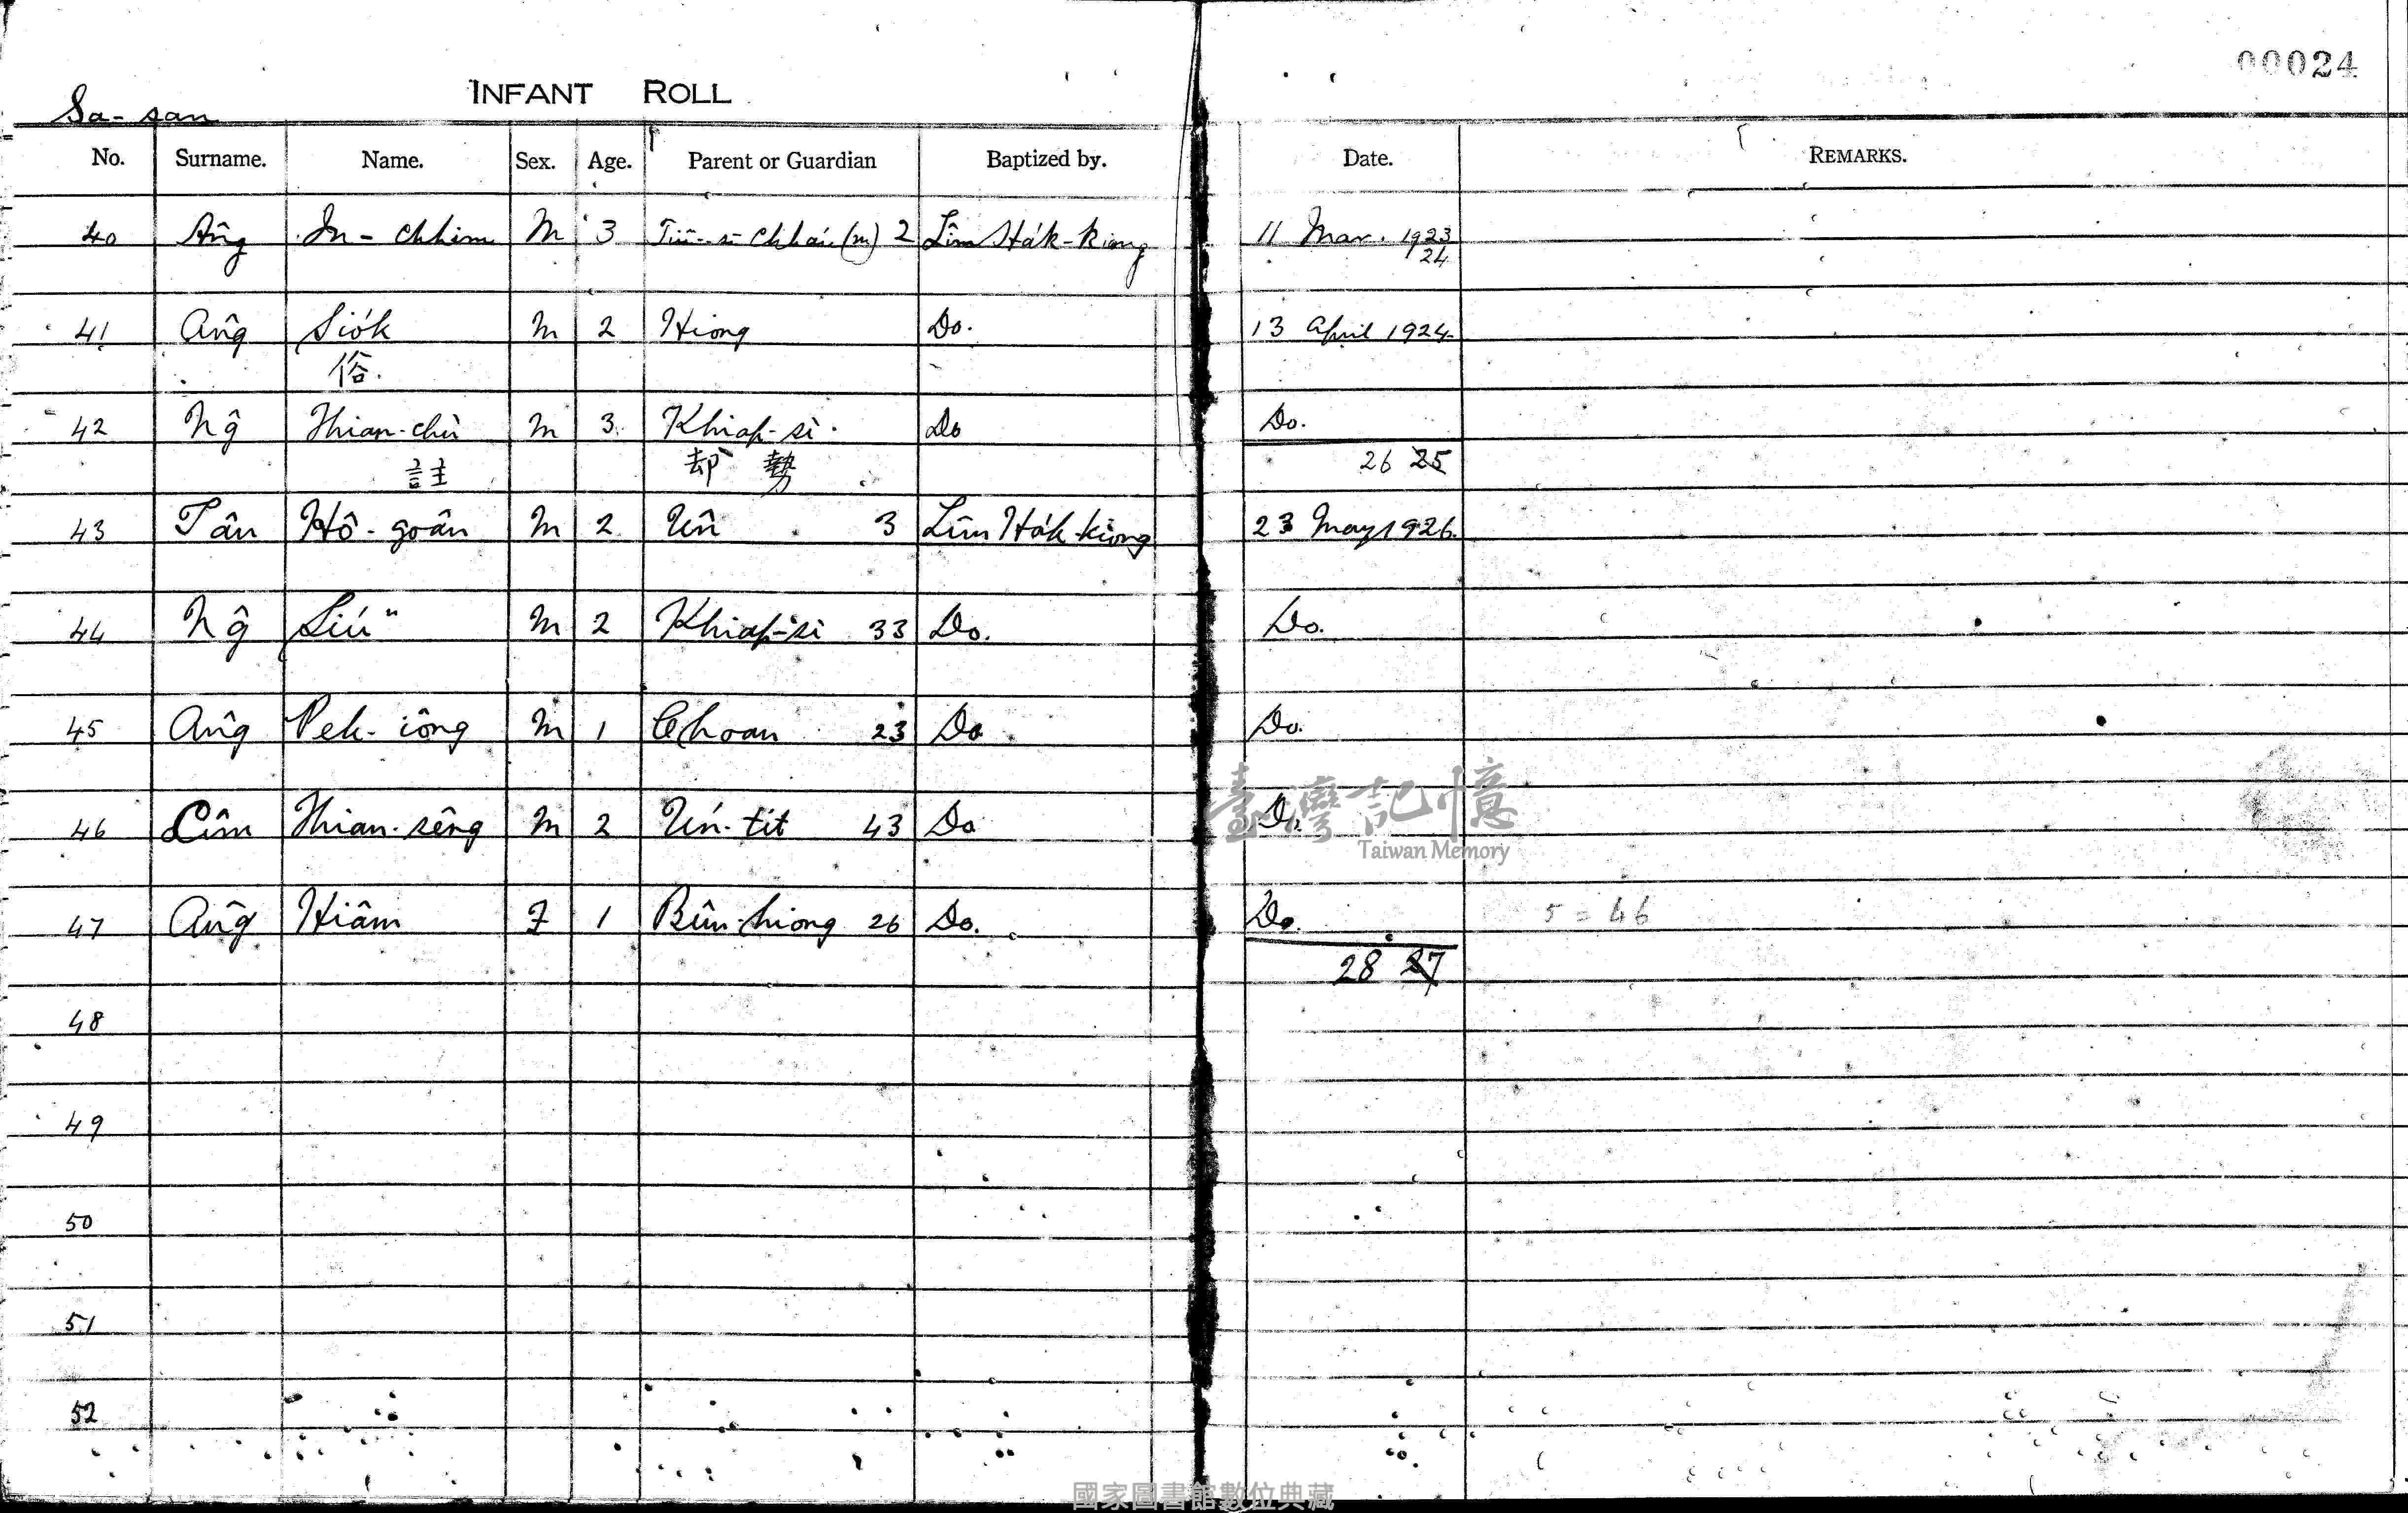 00024
INFANT ROLL
Sa-san
No. Surname. Name. Sex. Age. Parent or Guardian Baptized by. Date. REMARKS.
40 Âng In-chhim M 3 Tiuⁿ-sī Chháu (m) 2 Lîm Ha̍k-kiong 11 Mar. 1923
24
41 Âng Sio̍k M 2 Hiong Do. 13 April 1924
俗.
42 Nĝ Thian-chù M 3 Khiap-sì. Do Do.
註 却勢 26 25
43 Tân Hô-goân M 2 Ûn 3 Lîm Ha̍k-kiong 23 May 1926.
44 Nĝ Siúⁿ M 2 Khiap-sì 33 Do. Do.
45 Âng Pek-iông M 1 Choan 23 Do Do.
46 Lîm Thian-sêng M 2 Ún-tit 43 Do Do.
臺灣記憶
Taiwan Memory
47 Âng Hiâm F 1 Bûn-hiong 26 Do. Do. 5 = 46
28 27
48
49
50
51
52
國家圖書館數位典藏